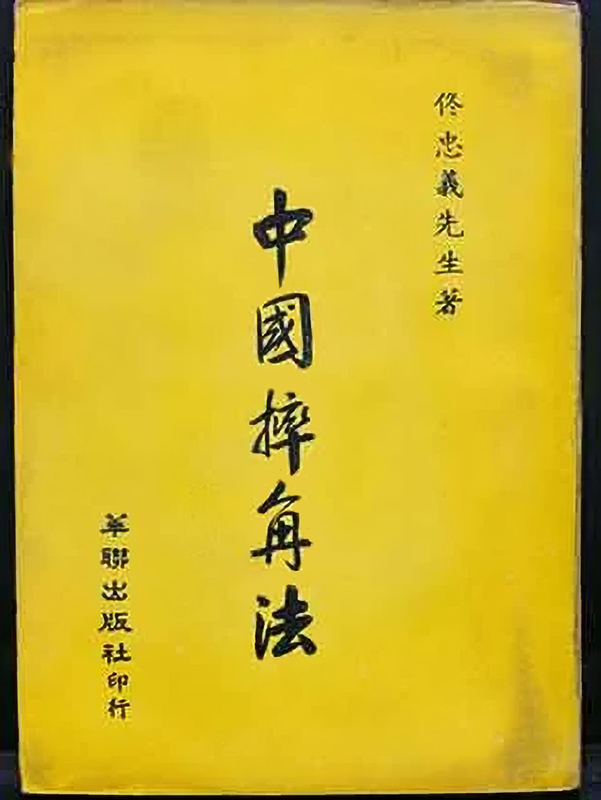 佟忠義先生著
中國摔角法
華聯出版社印行